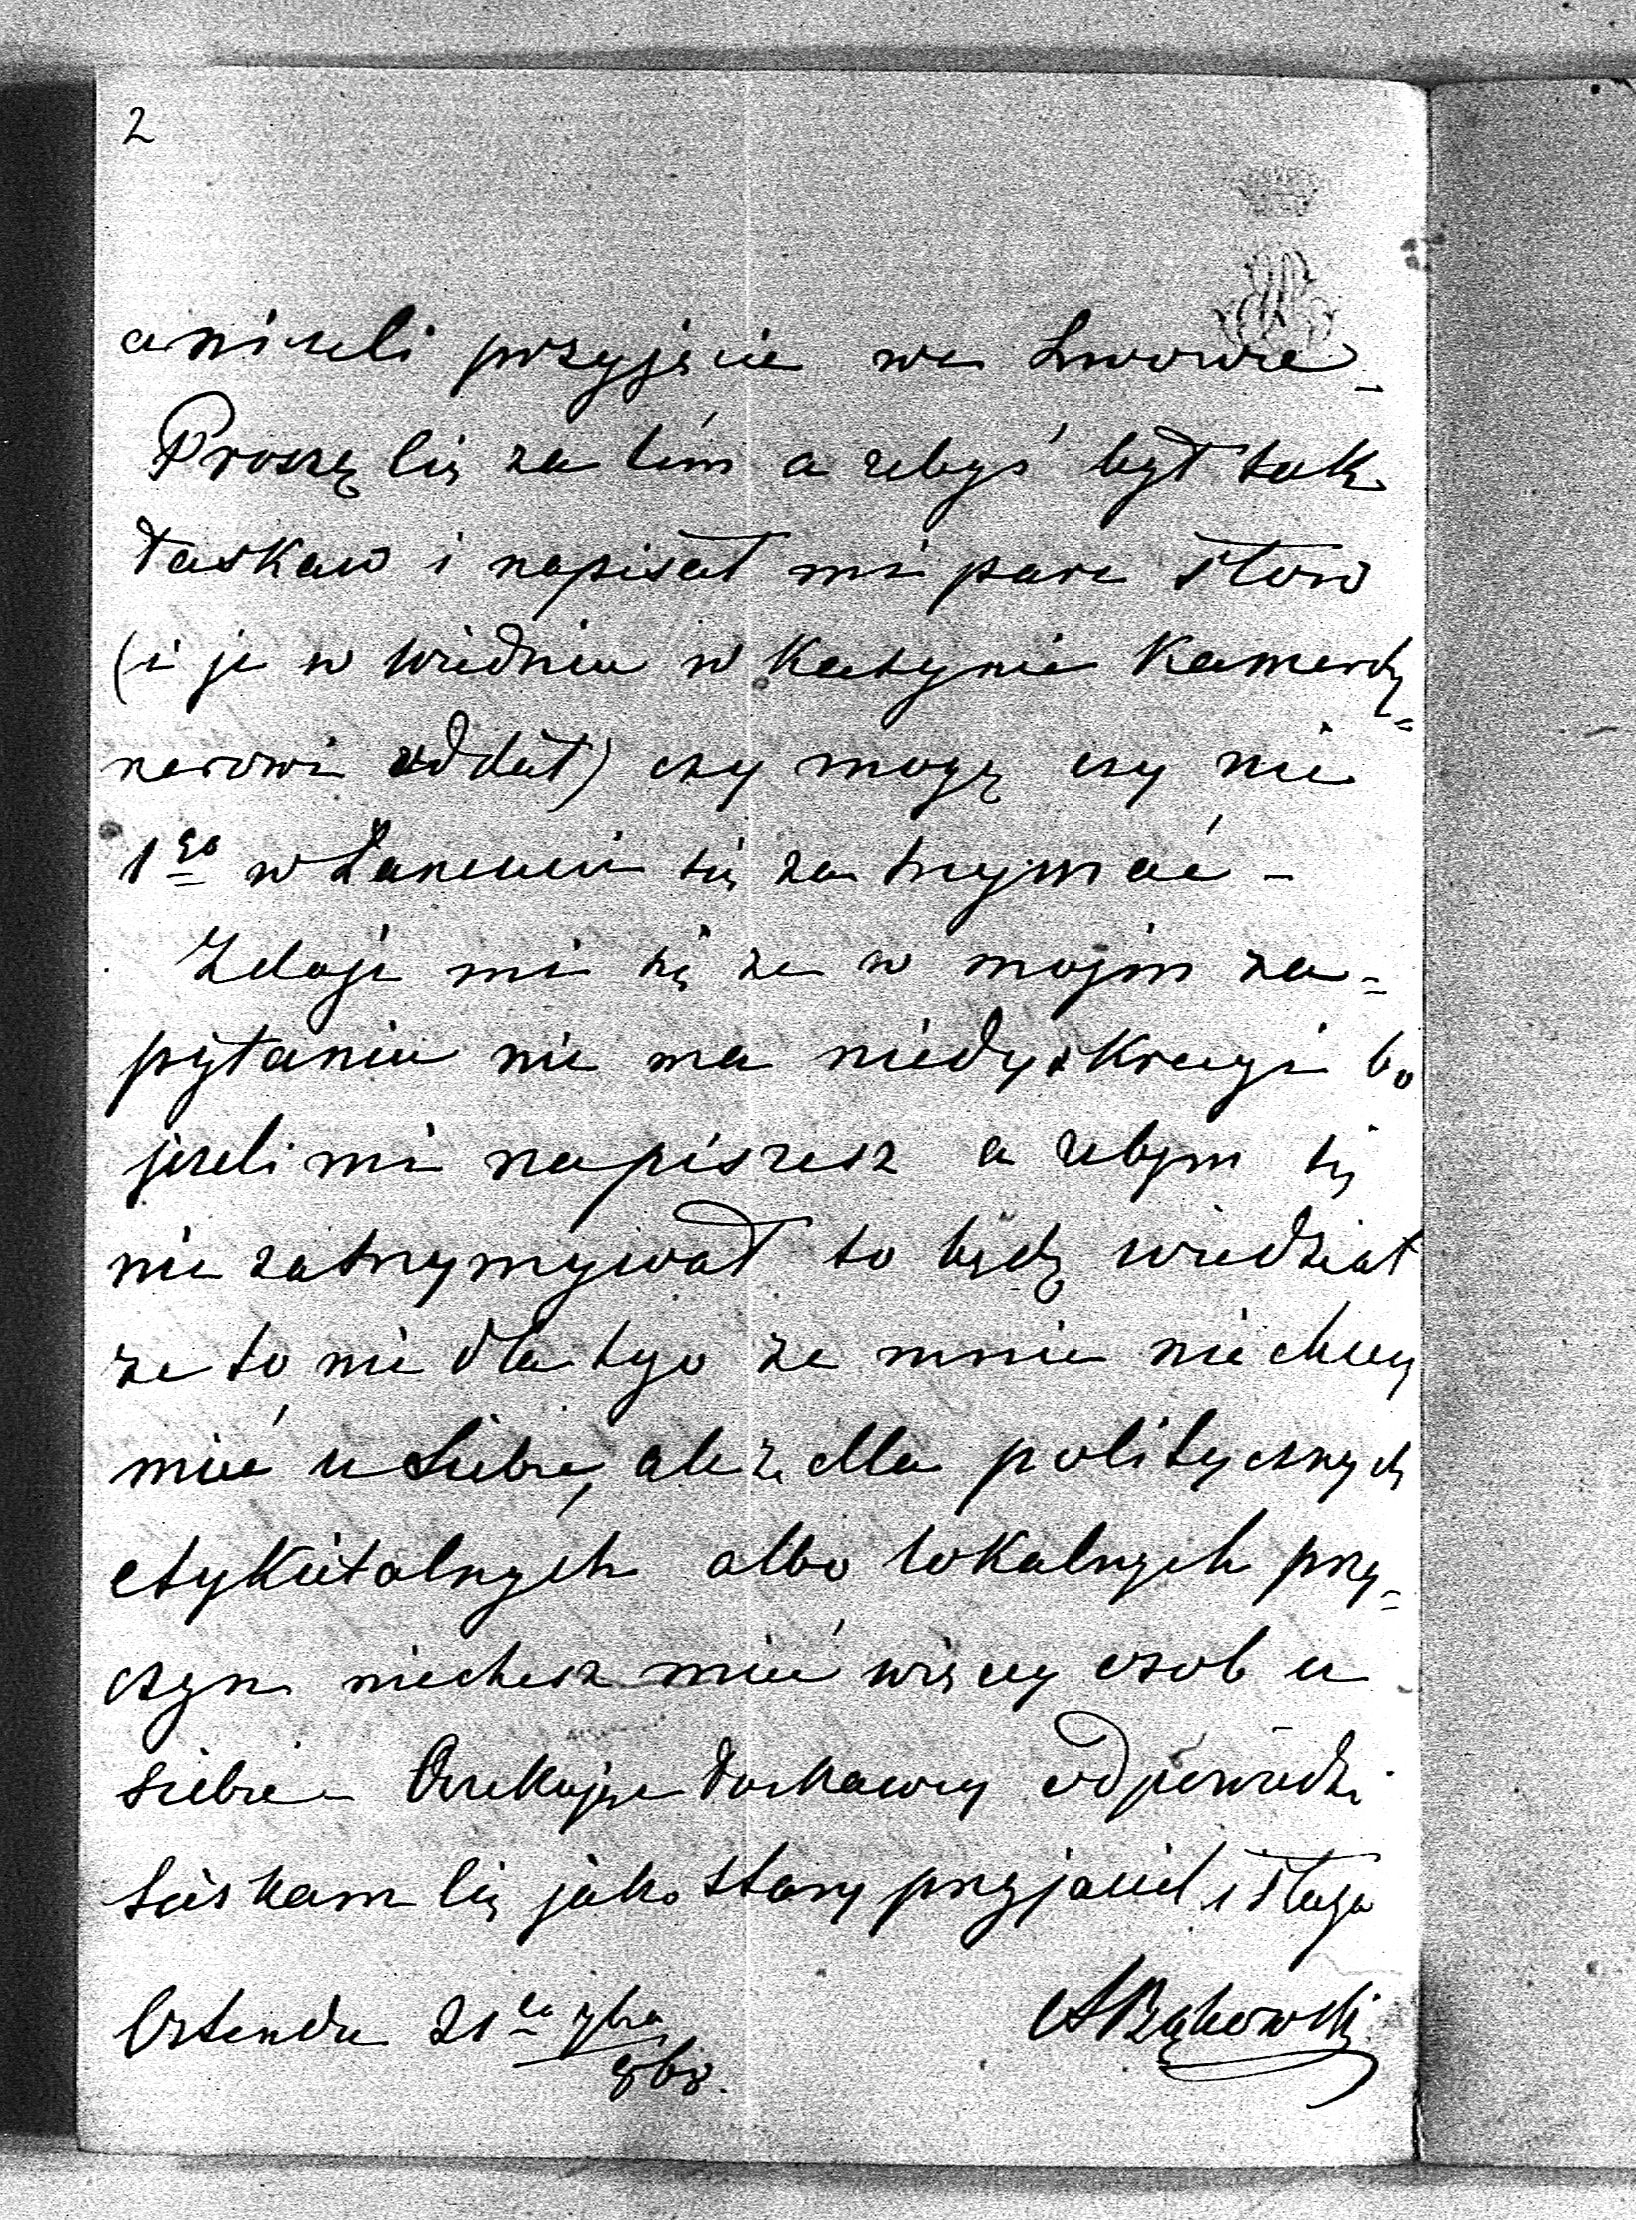 2
aniżeli przyjęcie we Lwowie –
Proszę Cię za tém a żebyś był tak
łaskaw i napisał mi pare słow
(i je w Wiedniu w Kasynie Kamerdy=
nerowi oddał) czy mogę czy nie
1go w Łańcucie się zatrzymać –
Zdaje mi się że w mojm za=
pytaniu nie ma niedyskrecyi bo
jeżeli mi napiszesz a żebym się
nie zatrzymywał to będę wiedział
że to nie dla tego że mnie nie chcesz
mieć u Siebie, ale że dla politycznych
etykietalnych albo lokalnych przy=
czyn niechcesz mieć więcej osob u
siebie – Oczekując łaskawej odpowiedzi
ściskam Cię jako stary przyjaciel i sługa
Ostenda 21go 7bra 868. ABąkowski